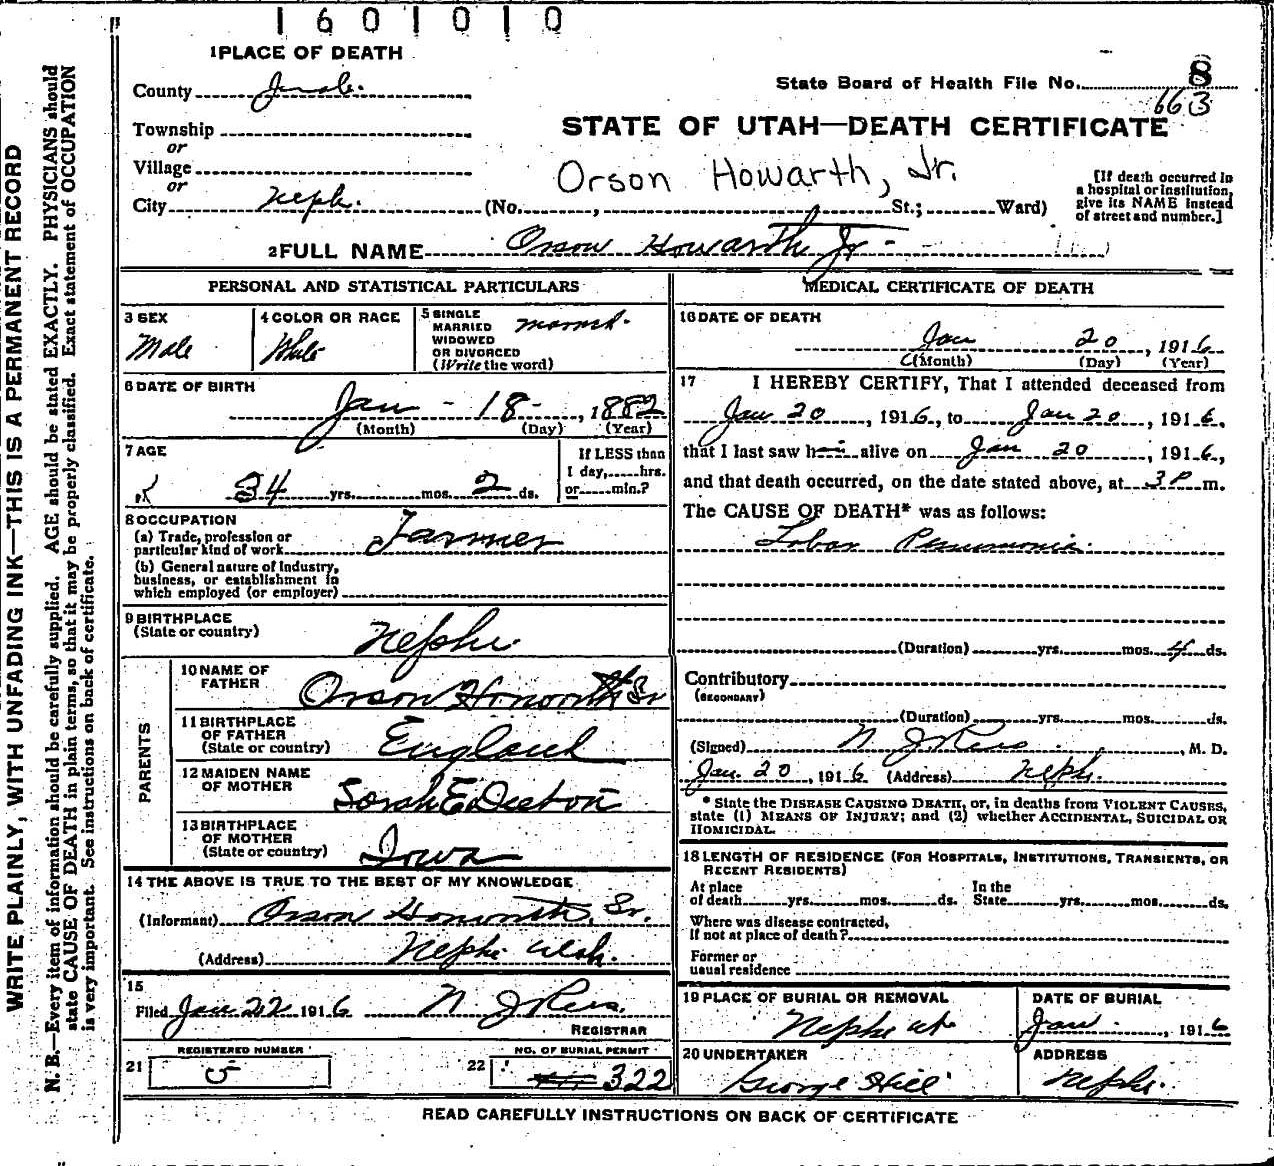 1601010
1 PLACE OF DEATH
County Juab.
State Board of Health File No. 8
663
Township
or
Village
or
City Neph.
STATE OF UTAH—DEATH CERTIFICATE
Orson Howarth, Jr.
(No. , St.; Ward)
[If death occurred in
a hospital or institution,
give its NAME instead
of street and number.]
2 FULL NAME Orson Howarth Jr
PERSONAL AND STATISTICAL PARTICULARS
3 SEX
Male
4 COLOR OR RACE
White
5 SINGLE
MARRIED
WIDOWED
OR DIVORCED
(Write the word)
married.
6 DATE OF BIRTH
Jan - 18 - , 1882
(Month) (Day) (Year)
7 AGE
34 yrs. mos. 2 ds.
If LESS than
1 day, hrs.
or min.?
8 OCCUPATION
(a) Trade, profession or
particular kind of work Farmer
(b) General nature of Industry,
business, or establishment in
which employed (or employer)
9 BIRTHPLACE
(State or country) Nephi
PARENTS
10 NAME OF
FATHER Orson Howorth Sr
11 BIRTHPLACE
OF FATHER
(State or country) England
12 MAIDEN NAME
OF MOTHER Sarah E.
13 BIRTHPLACE
OF MOTHER
(State or country) Iowa
14 THE ABOVE IS TRUE TO THE BEST OF MY KNOWLEDGE
(Informant) Orson Howorth, Sr.
(Address) Nephi Utah.
15
Filed Jan 22 1916 N. J. Rees.
REGISTRAR
21 REGISTERED NUMBER
5
22 NO. OF BURIAL PERMIT
322
MEDICAL CERTIFICATE OF DEATH
16 DATE OF DEATH
Jan 20 , 1916
(Month) (Day) (Year)
17 I HEREBY CERTIFY, That I attended deceased from
Jan 20 , 1916, to Jan 20 , 1916,
that I last saw him alive on Jan 20 , 1916,
and that death occurred, on the date stated above, at 3 P m.
The CAUSE OF DEATH* was as follows:
Lobar Pneumonia.
(Duration) yrs. mos. 4 ds.
Contributory
(SECONDARY)
(Duration) yrs. mos. ds.
(Signed) N. J. Rees , M. D.
Jan. 20 , 1916 (Address) Neph.
* State the DISEASE CAUSING DEATH, or, in deaths from VIOLENT CAUSES,
state (1) MEANS OF INJURY; and (2) whether ACCIDENTAL, SUICIDAL OR
HOMICIDAL.
18 LENGTH OF RESIDENCE (FOR HOSPITALS, INSTITUTIONS, TRANSIENTS, OR
RECENT RESIDENTS)
At place
of death yrs. mos. ds.
In the
State yrs. mos. ds.
Where was disease contracted,
If not at place of death?
Former or
usual residence
19 PLACE OF BURIAL OR REMOVAL
Nephi ut
DATE OF BURIAL
Jan , 1916
20 UNDERTAKER
George Hill
ADDRESS
Nephi.
READ CAREFULLY INSTRUCTIONS ON BACK OF CERTIFICATE
WRITE PLAINLY, WITH UNFADING INK—THIS IS A PERMANENT RECORD
N. B.—Every item of information should be carefully supplied. AGE should be stated EXACTLY. PHYSICIANS should
state CAUSE OF DEATH in plain terms, so that it may be properly classified. Exact statement of OCCUPATION
is very important. See instructions on back of certificate.